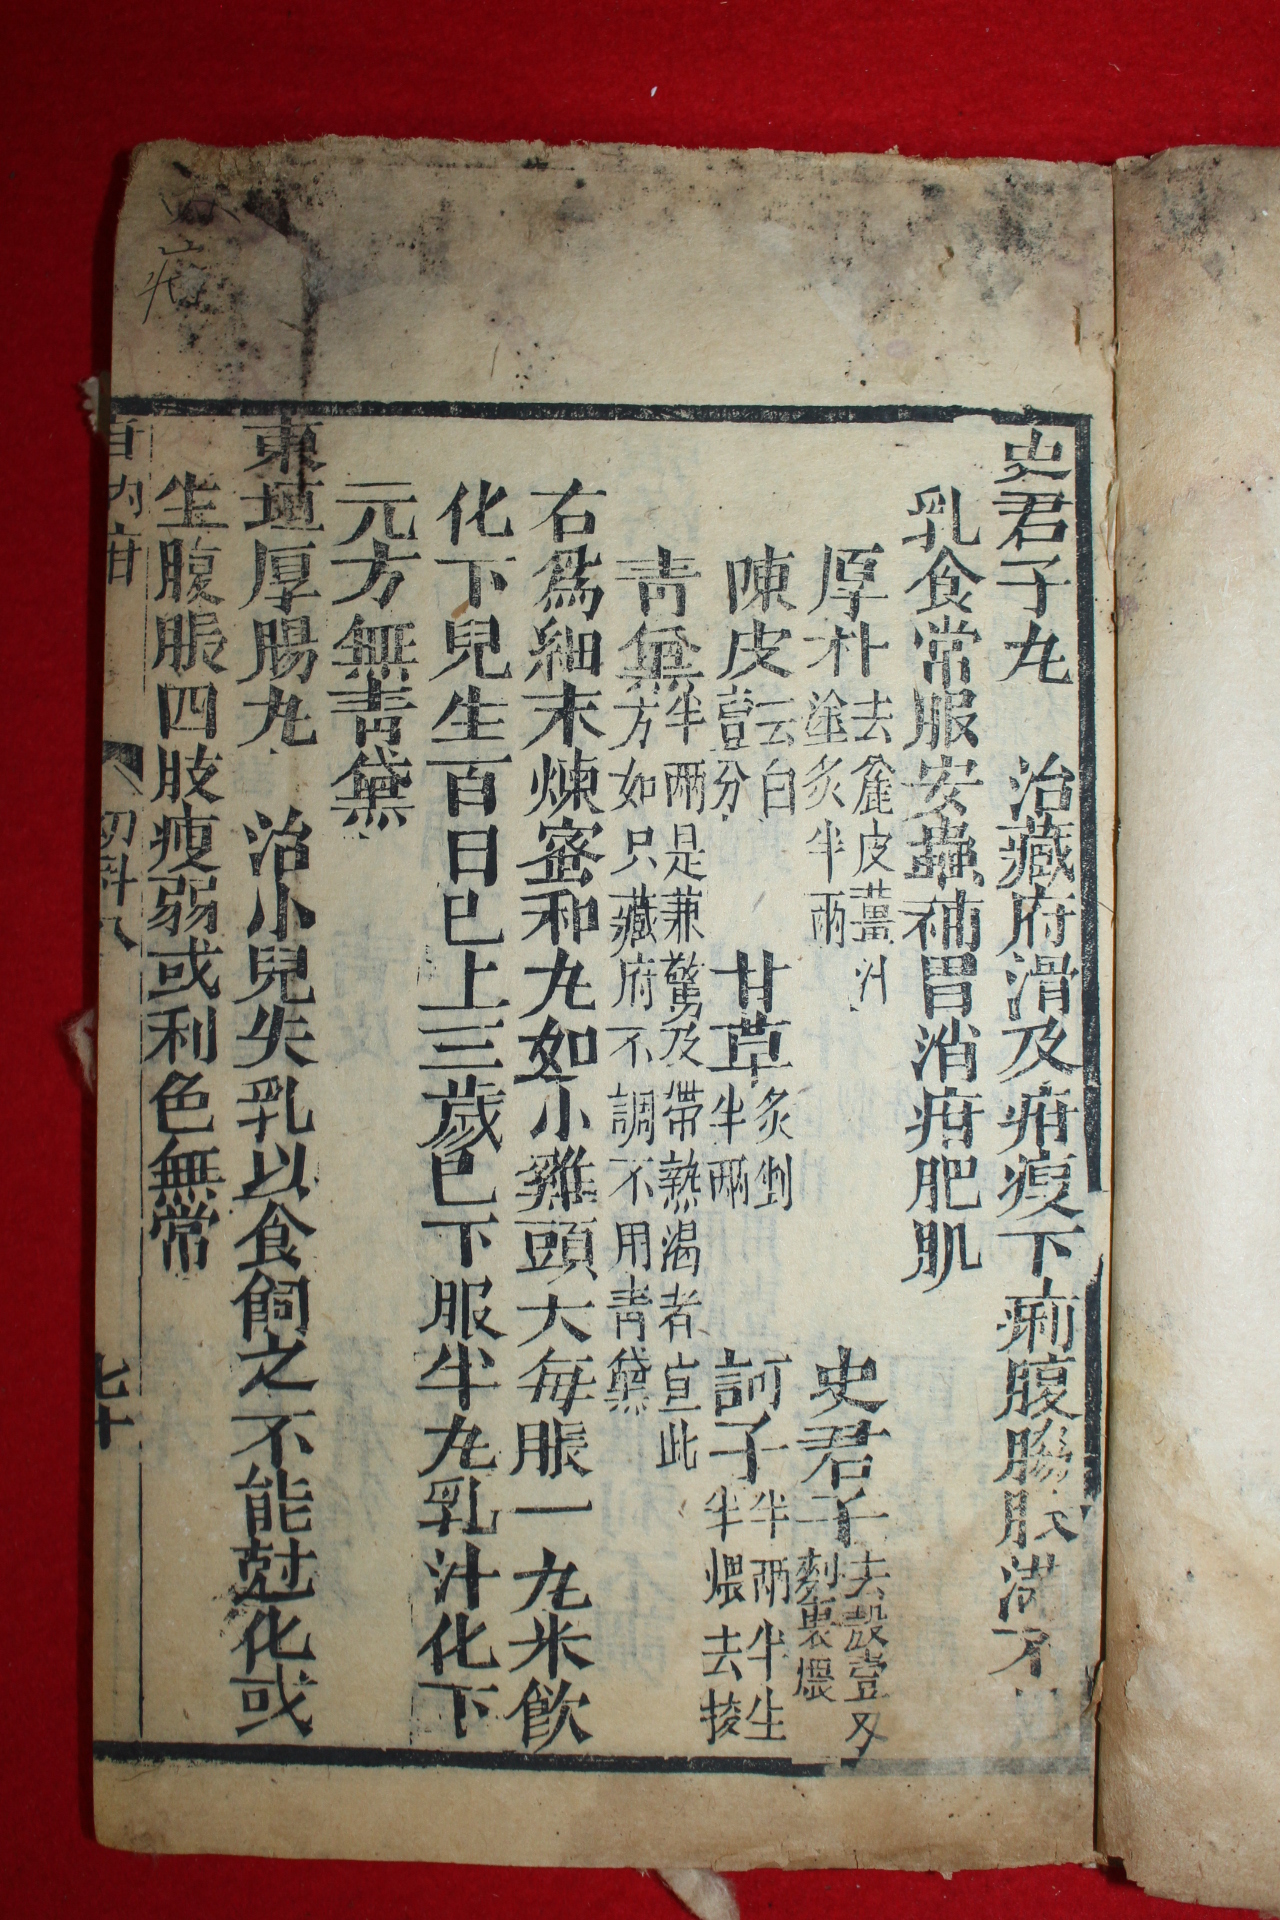 史君子丸 治藏府滑及疳瘦下痢腹脇脹滿不
乳食常服安蟲補胃消疳肥肌
厚朴去麄皮薑汁塗炙半兩 史君子去殼壹兩麪裹煨
陳皮去白壹分 甘草炙剉半兩 訶子半兩半生半煨去核
青黛半兩是兼驚及帶熱渴者宣此方如只藏府不調不用青黛
右爲細末煉蜜和丸如小雞頭大每服一丸米飮
化下兒生百日已上三歲已下服半丸乳汁化下
元方無靑黛
東垣厚腸丸 治小兒失乳以食飼之不能尅化或
生腹脹四肢瘦弱或利色無常
百內疳 幼科八 七十